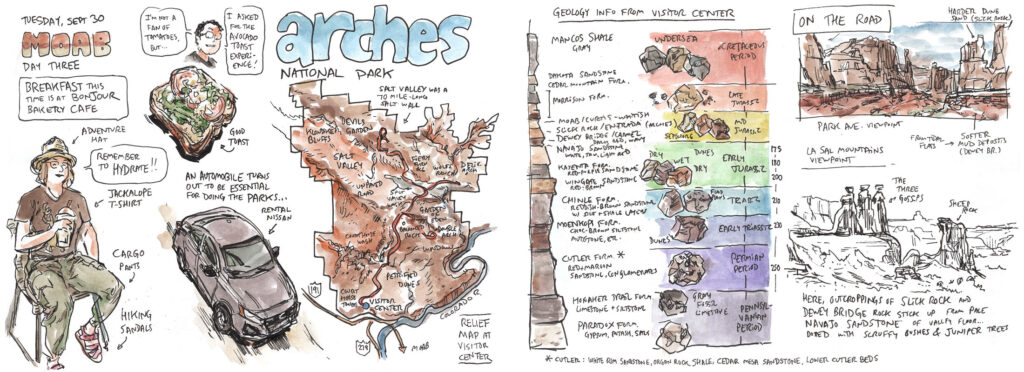 TUESDAY, SEPT 30
MOAB
DAY THREE
BREAKFAST THIS
TIME IS AT BONJOUR
BAKERY CAFE
I'M NOT A
FAN OF
TOMATOES,
BUT...
I ASKED
FOR THE
AVOCADO
TOAST
EXPERI-
ENCE!
GOOD
TOAST
ADVENTURE
HAT
REMEMBER
TO HYDRATE!!
JACKALOPE
T-SHIRT
CARGO
PANTS
HIKING
SANDALS
AN AUTOMOBILE TURNS
OUT TO BE ESSENTIAL
FOR DOING THE PARKS...
RENTAL
NISSAN
arches
NATIONAL PARK
SALT VALLEY WAS A
MILE-LONG
SALT WALL
DEVILS
GARDEN
KLONDIKE
BLUFFS
SALT
VALLEY
UNPAVED
ROAD
SALT
VALLEY
GARDEN
COURTHOUSE
WASH
BALANCED
ROCK
DOUBLE
ARCH
WINDOWS
PETRIFIED
DUNES
COURT
HOUSE
TOWERS
VISITOR
CENTER
COLORADO R.
191
279
MOAB
RELIEF
MAP AT
VISITOR
CENTER
GEOLOGY INFO FROM VISITOR CENTER
MANCOS SHALE
GRAY
UNDERSEA
CRETACEOUS
PERIOD
DAKOTA SANDSTONE
CEDAR MOUNTAIN FORM.
MORRISON FORM.
LATE
JURASSIC
MOAB/CURTIS - WHITISH
SLICK ROCK/ENTRADA (ARCHES)
DEWEY BRIDGE/CARMEL
DARK RED, WAVY
SEASHORE
MID
JURASSIC
NAVAJO SANDSTONE
WHITE, TAN, LIGHT RED
KAYENTA FORM.
RED-PURPLE SANDSTONE
WINGATE SANDSTONE
RED-BROWN
DRY
WET
DUNES
DRY
EARLY
JURASSIC
175
200
CHINLE FORM.
REDDISH-BROWN SANDSTONE
TRIASSIC
210
MOENKOPI FORM.
CHOC-BROWN SILTSTONE
MUDSTONE, ETC.
EARLY TRIASSIC
230
DUNES
CUTLER FORM *
RED-MAROON
SANDSTONE, CONGLOMERATES
PERMIAN
PERIOD
250
HONAKER TRAIL FORM.
LIMESTONE + SILTSTONE
GRAY
LIMESTONE
PENNSYL-
VANIAN
PERIOD
PARADOX FORM.
GYPSUM, POTASH, SALT
* CUTLER: WHITE RIM SANDSTONE, ORGAN ROCK SHALE, CEDAR MESA SANDSTONE, LOWER CUTLER BEDS
ON THE ROAD
HARDER DUNE
SAND (SLICK ROCK)
PARK AVE. VIEWPOINT
FROM TIDAL
FLATS
SOFTER
MUD DEPOSITS
(DEWEY BR.)
LA SAL MOUNTAINS
VIEWPOINT
THE
THREE
GOSSIPS
SHEEP
ROCK
HERE, OUTCROPPINGS OF SLICK ROCK AND
DEWEY BRIDGE ROCK STICK UP FROM PALE
NAVAJO SANDSTONE OF VALLEY FLOOR...
DOTTED WITH SCRUFFY BUSHES & JUNIPER TREES